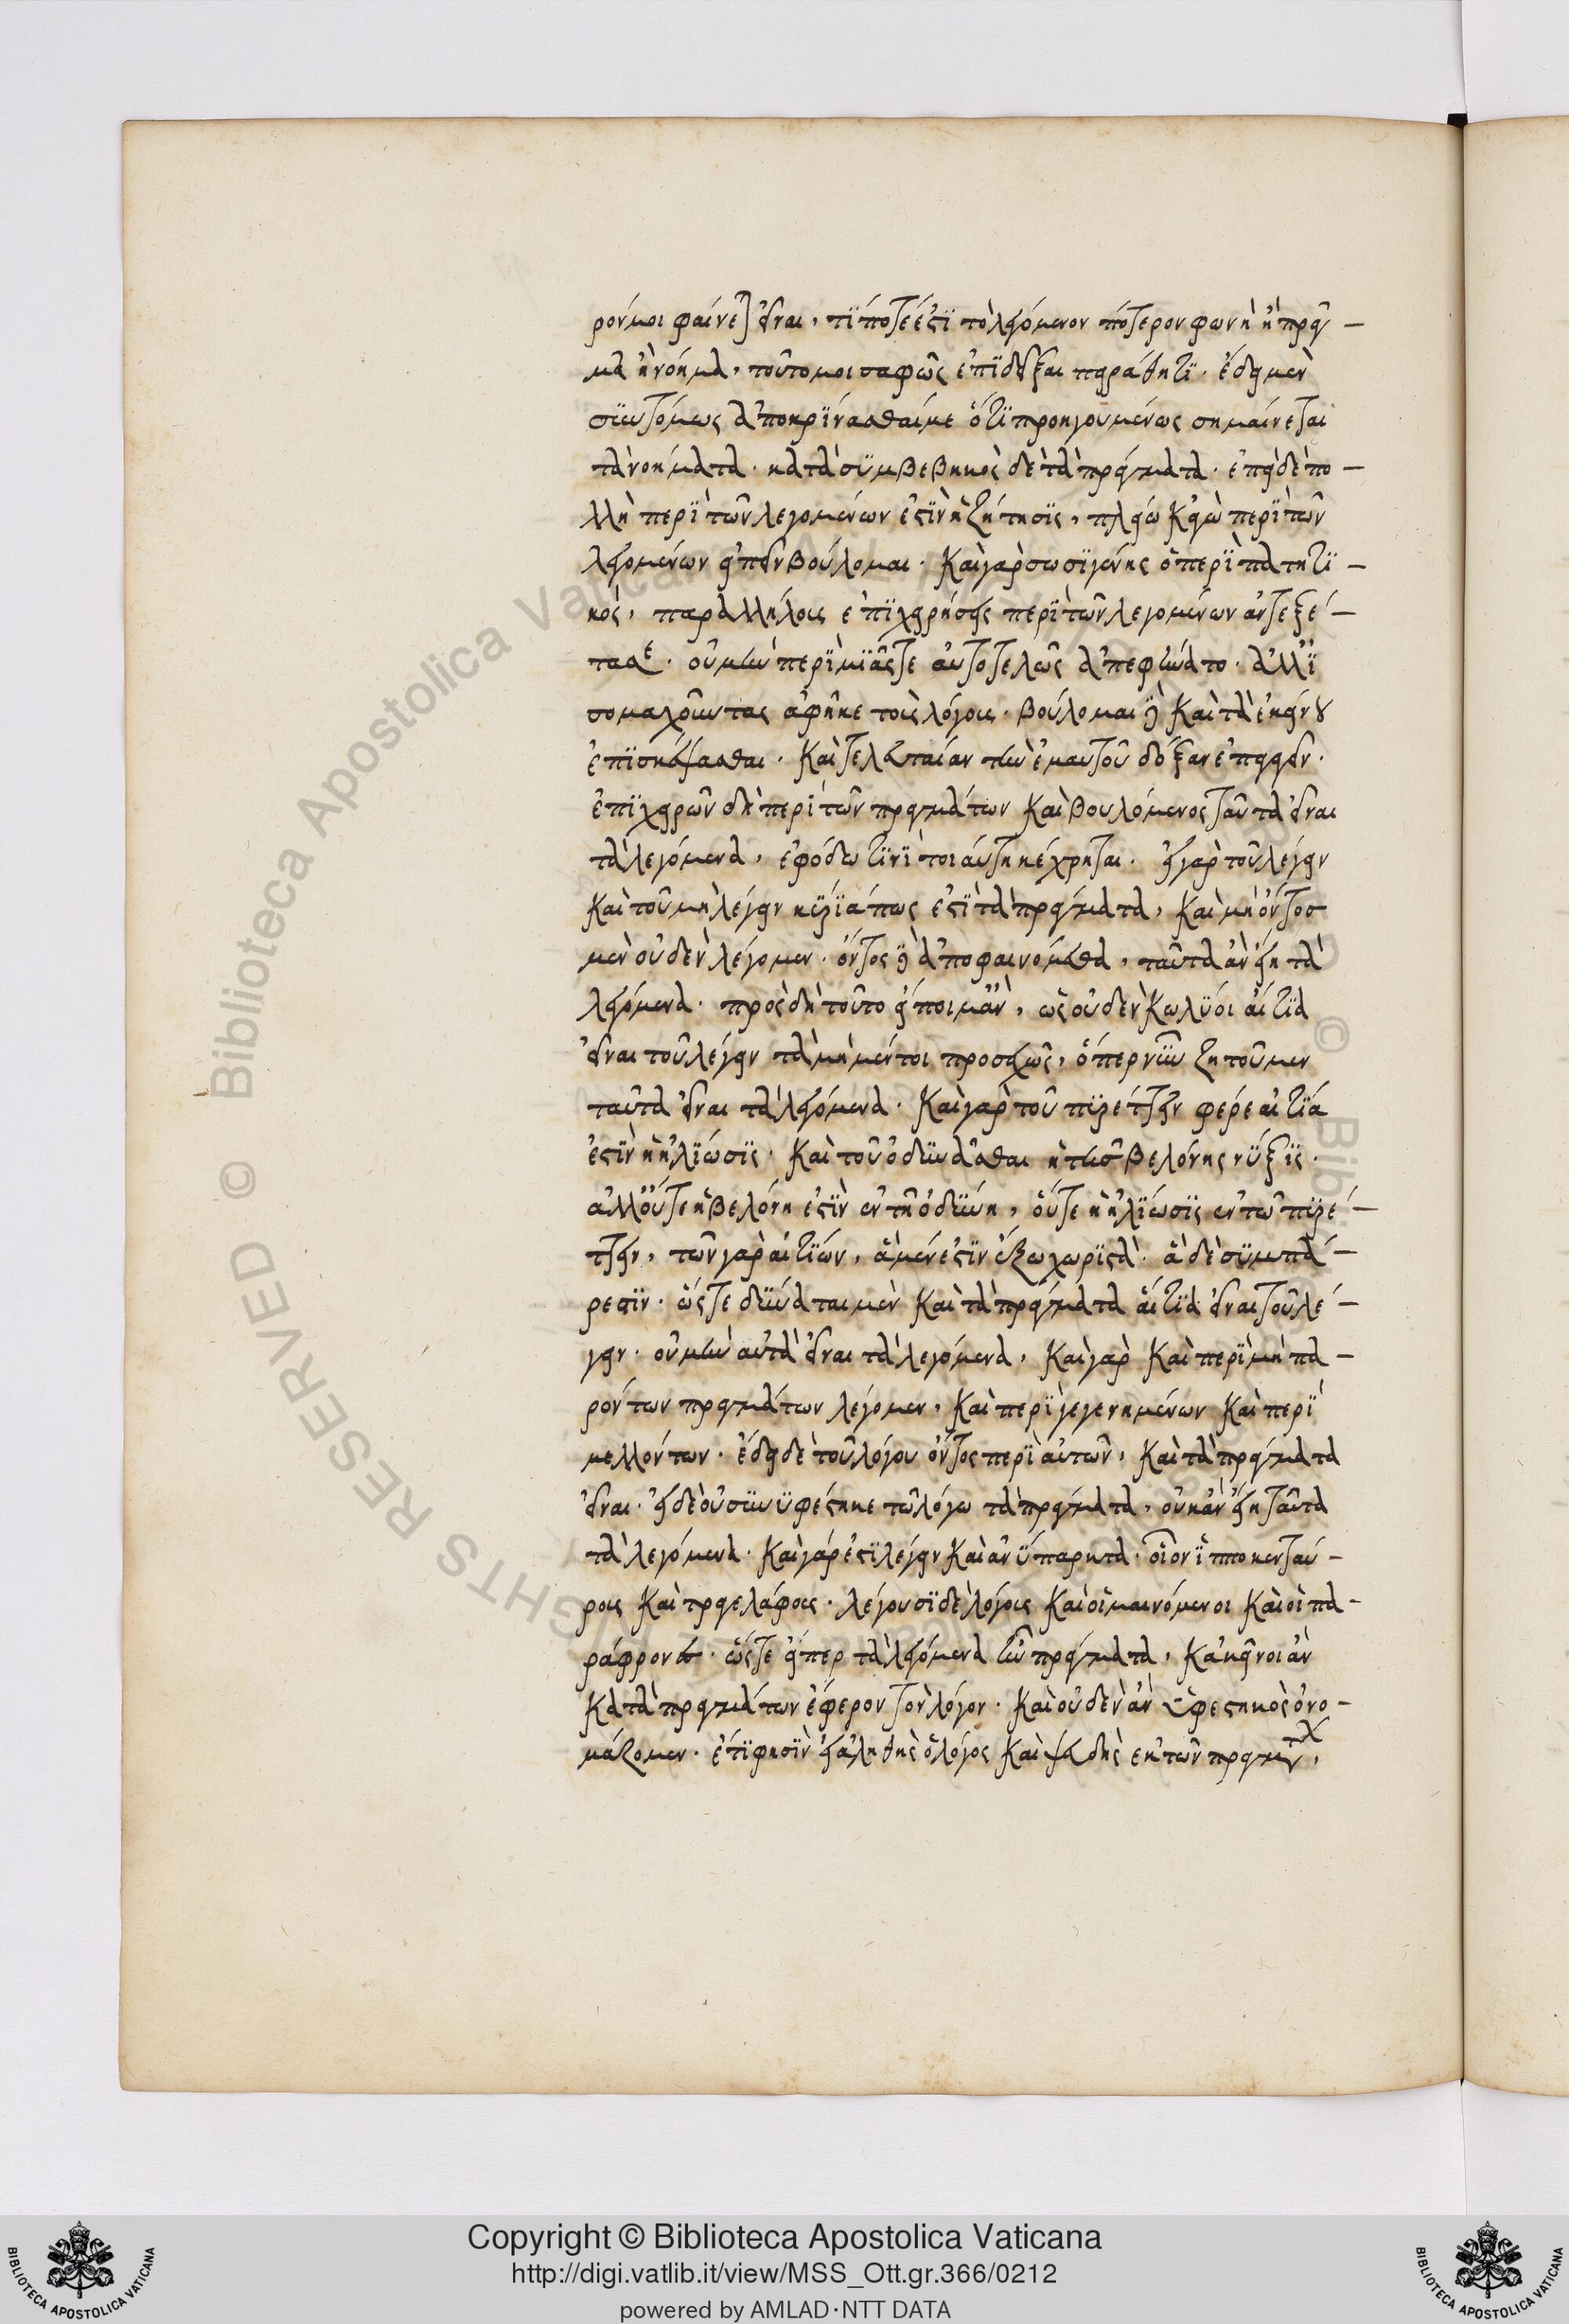 ρόν μοι φαίνεται εἶναι, τί ποτέ ἐστι τὸ λεγόμενον πότερον φωνὴ ἢ πρᾶγ-
μα ἢ νόημα, τοῦτό μοι σαφῶς ἐπιδεῖξαι πειράθητι. ἔδει μὲν
συντόμως ἀποκρίνασθαί με ὅτι προηγουμένως σημαίνεται
τὰ νοήματα. κατὰ συμβεβηκὸς δὲ τὰ πράγματα. ἐπεὶ δὲ πο-
λλὴ περὶ τῶν λεγομένων ἐστὶν ἡ ζήτησις, πλείω κἀγὼ περὶ τῶν
λεγομένων εἰπεῖν βούλομαι. καὶ γὰρ σωσιγένης ὁ περιπατητι-
κός, παραλλήλοις ἐπιχειρήσεις περὶ τῶν λεγομένων ἀντεξέ-
τασε. οὐ μὴν περὶ μιᾶς τε αὐτοτελῶς ἀπεφήνατο. ἀλλ' ἰ
σομαχοῦντας ἀφῆκε τοῖς λόγοις. βούλομαι δὲ καὶ τὰ ἐκείνου
ἐπισκέψασθαι. καὶ τελευταίαν τὴν ἐμαυτοῦ δόξαν ἐπαγαγεῖν.
ἐπιχειρῶν δὴ περὶ τῶν πραγμάτων καὶ βουλόμενος ταῦτα εἶναι
τὰ λεγόμενα, ἐφόδω τινὶ τοιαύτη κέχρηται. εἰ γὰρ τοῦ λέγειν
καὶ τοῦ μὴ λέγειν κύριά πως ἐστὶ τὰ πράγματα, καὶ μὴ ὄντος
μὲν οὐδὲν λέγομεν. ὄντος δὲ ἀποφαινόμεθα, ταῦτα ἂν εἴη τὰ
λεγόμενα. πρὸς δὴ τοῦτο εἴποιμ' ἂν, ὡς οὐδὲν κωλύοι αἴτια
εἶναι τοῦ λέγειν τὰ μὴ μέντοι προσεχῶς, ὅπερ νῦν ζητοῦμεν
ταῦτα εἶναι τὰ λεγόμενα. καὶ γὰρ τοῦ πυρέττειν φέρε αἰτία
ἐστὶν ἡ ἡλίωσις. καὶ τοῦ ὀδυνᾶσθαι ἡ τῆς βελόνης νύξις.
ἀλλ' οὔτε ἡ βελόνη ἐστὶν ἐν τῇ ὀδύνη, οὔτε ἡ ἡλίωσις ἐν τῶ πυρέ-
ττειν, τῶν γὰρ αἰτίων, ἃ μέν ἐστιν ἔξω χωριστὰ. ἃ δὲ συμπά-
ρεστιν. ὥστε δύναται μὲν καὶ τὰ πράγματα αἴτια εἶναι τοῦ λέ-
γειν. οὐ μὴν αὐτὰ εἶναι τὰ λεγόμενα, καὶ γὰρ καὶ περὶ μὴ πα-
ρόντων πραγμάτων λέγομεν, καὶ περὶ γεγενημένων καὶ περὶ
μελλόντων. ἔδει δὲ τοῦ λόγου ὄντος περὶ αὐτῶν, καὶ τὰ πράγματα
εἶναι. εἰ δὲ οὐ συνυφέστηκε τῶ λόγω τὰ πράγματα, οὐκ ἂν εἴη ταῦτα
τὰ λεγόμενα. καὶ γάρ ἐστι λέγειν καὶ ἀνύπαρκτα. οἷον ἱπποκενταύ-
ροις καὶ τραγελάφοις. λέγουσι δὲ λόγοις καὶ οἱ μαινόμενοι καὶ οἱ πα-
ράφρονες. ὥστε εἴπερ τὰ λεγόμενα ἦν πράγματα, κἀκεῖνοι ἂν
κατὰ πραγμάτων ἔφερον τὸν λόγον. καὶ οὐδὲν ἂν ὑφεστηκὸς ὀνο-
μάζομεν. ἔτι φησὶν εἰ ἀληθὴς ὁ λόγος καὶ ψευδὴς ἐκ τῶν πραγμάτων,
Copyright © Biblioteca Apostolica Vaticana
http://digi.vatlib.it/view/MSS_Ott.gr.366/0212
powered by AMLAD·NTT DATA